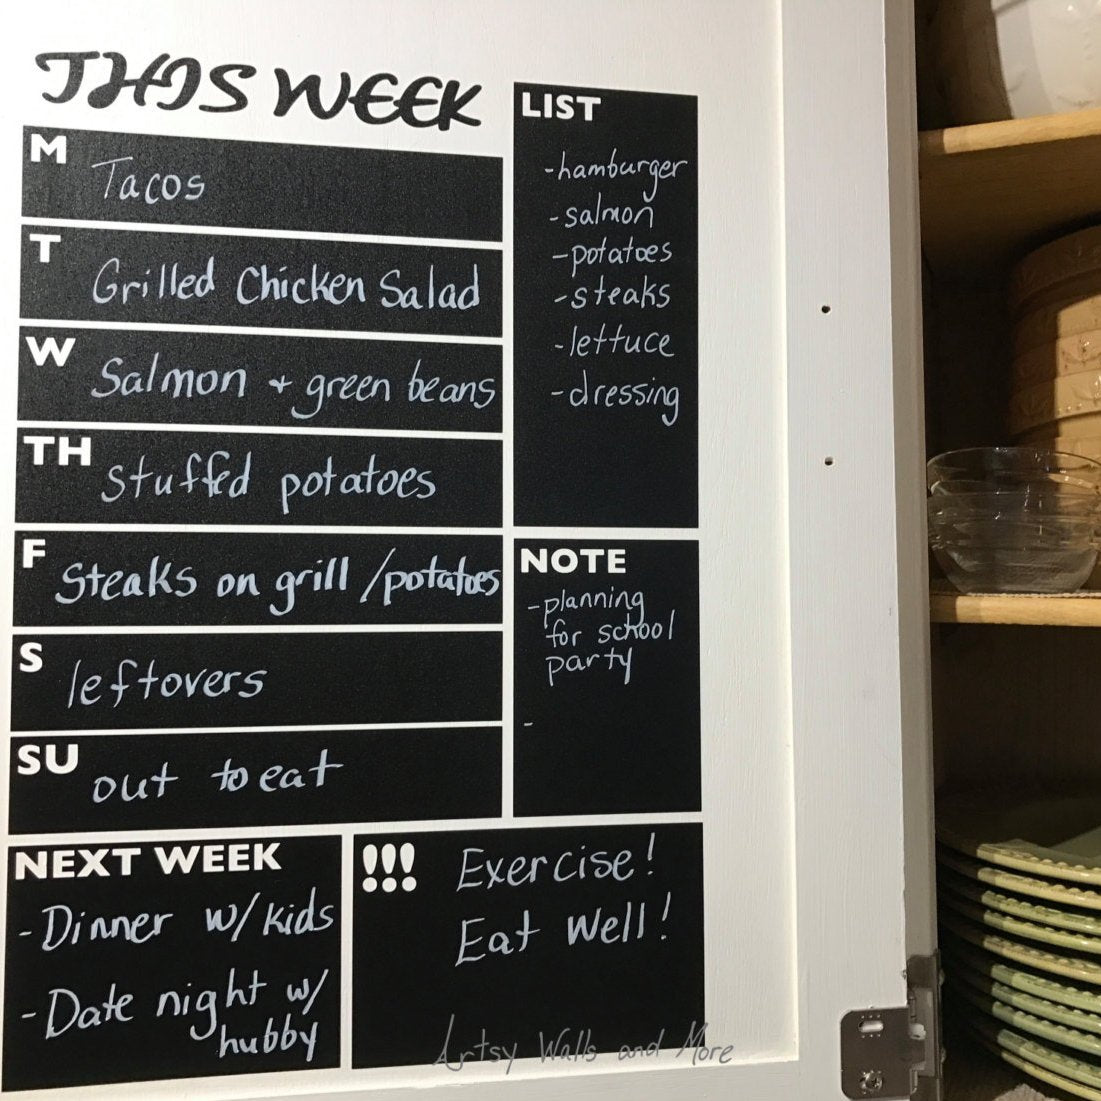 THIS WEEK
M
Tacos
T
Grilled Chicken Salad
W
Salmon + green beans
TH
stuffed potatoes
F
Steaks on grill /potatoes
S
leftovers
SU
out to eat
LIST
-hamburger
-salmon
-potatoes
-steaks
-lettuce
-dressing
NOTE
-planning
for school
party
-
NEXT WEEK
-Dinner w/kids
-Date night w/
hubby
!!!
Exercise!
Eat Well!
Artsy Walls and More